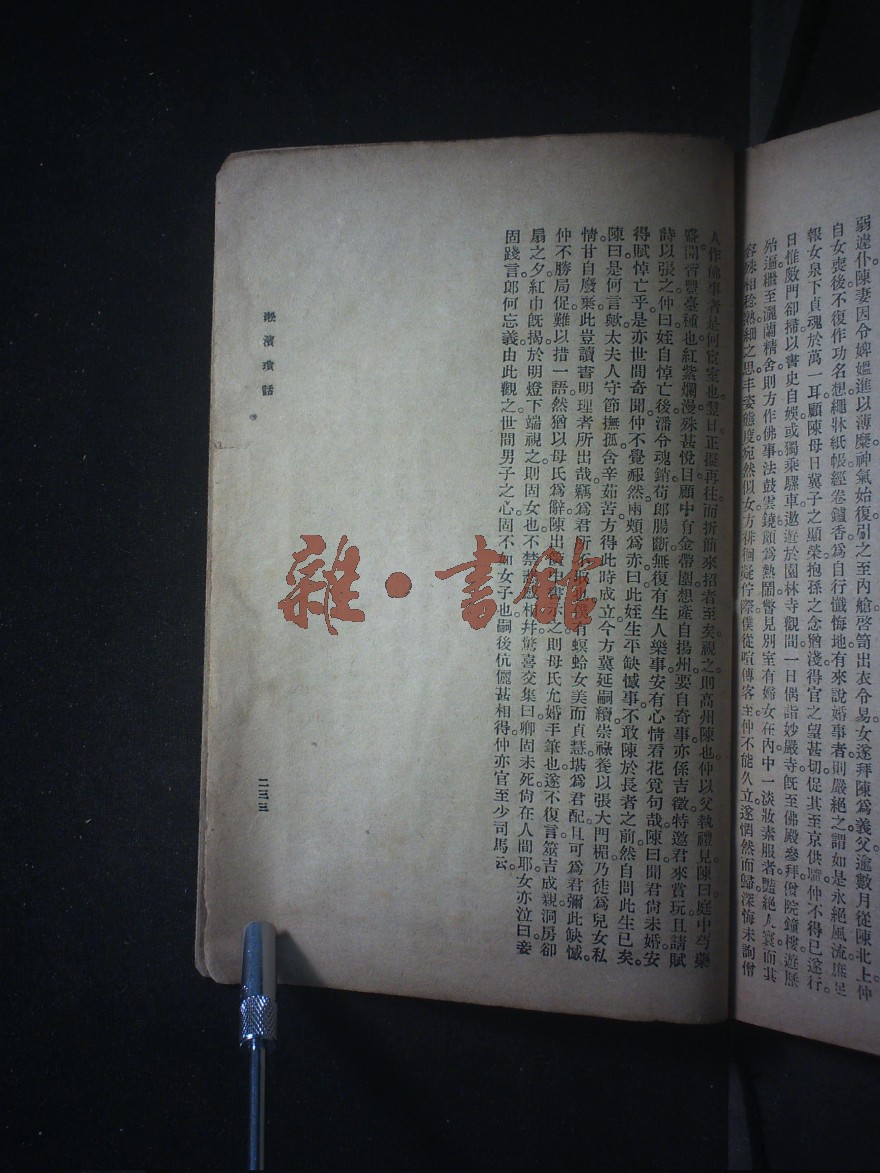 弱違仆陳妻因令婢媼進以薄糜神氣始復引之至內艙啓笥出衣令易女遂拜陳爲義父逾數月從陳北上仲
自女喪後不復作功名想繩牀紙帳經卷鑪香爲自行懺悔地有來說婚事者則嚴絕之謂如是永絕風流庶足
報女泉下貞魂於萬一耳顧陳母日冀子之顯榮抱孫之念猶淺得官之望甚切促其至京供職仲不得已遂行。
日惟敲門卻掃以書史自娛或獨乘騾車遨遊於園林寺觀間一日偶詣妙嚴寺旣至佛殿參拜僧院鐘樓遊歷
殆遍繼至灑蘭精舍則方作佛事法鼓雲鐃頗爲熱鬧瞥見別室有婦女在內中一淡妝素服者豔絕人寰而其
容殊相稔熟細之思丰姿態度宛然似女方徘徊凝佇際僕從喧傳客至仲不能久立遂惘然而歸深悔未詢僧
人作佛事者是何宦室也翌日正擬再往而折簡來招者至矣視之則高州陳也仲以父執禮見陳曰庭中芍藥
盛開皆豐臺種也紅紫爛漫殊甚悅目顧中有金帶圍想產自揚州要自奇事亦係吉徵特邀君來賞玩且請賦
詩以張之仲曰姪自悼亡後潘令魂銷荀郎腸斷無復有生人樂事安有心情看花覓句哉陳曰聞君尙未婚安
得賦悼亡乎是亦世間奇聞仲不覺赧然兩頰爲赤曰此姪生平缺憾事不敢陳於長者之前然自問此生已矣。
陳曰是何言歟太夫人守節撫孤含辛茹苦方得此時成立今方冀延嗣續崇祿養以張大門楣乃徒爲兒女私
情甘自廢棄此豈讀書明理者所出哉竊爲君所不取也僕有螟蛉女美而貞慧堪爲君配且可爲君彌此缺憾。
仲不勝局促難以措一語然猶以母氏爲辭陳出之則母氏允婚手筆也遂不復言筮吉成親洞房卻
扇之夕紅巾旣揭於明燈下端視之則固女也不禁相幷驚喜交集曰卿固未死尙在人間耶女亦泣曰妾
固踐言郎何忘義由此觀之世間男子之心固不如女子也嗣後伉儷甚相得仲亦官至少司馬云。
淞濱瑣話
二三三
雜·書館